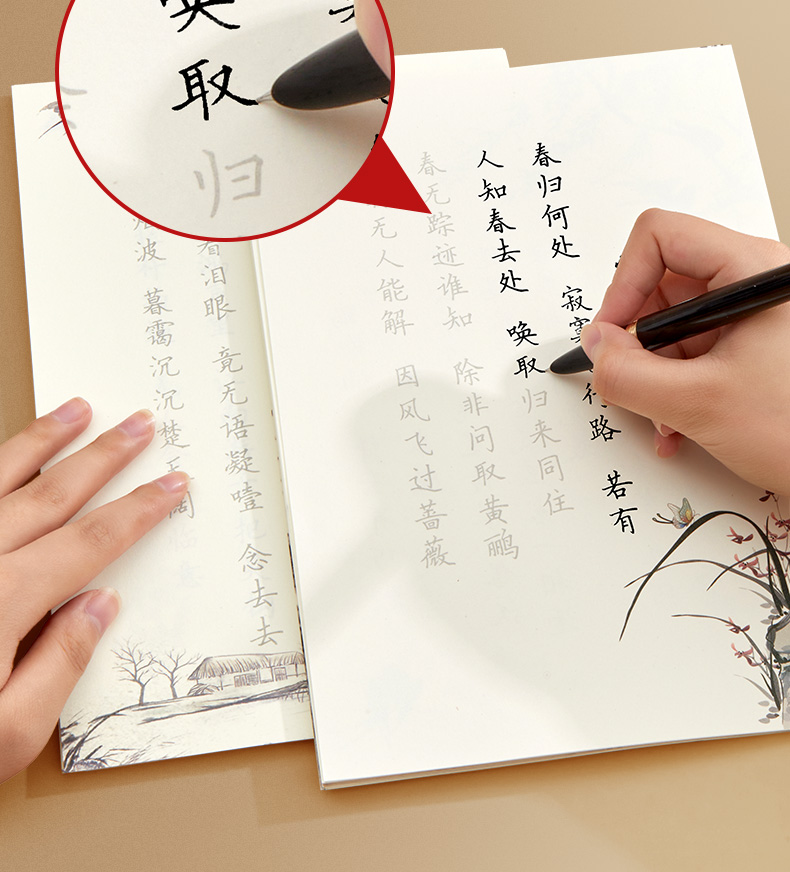 取
归
春归何处 寂寞 路 若有
人知春去处 唤取归来同住
春无踪迹谁知 除非问取黄鹂
无人能解 因风飞过蔷薇
看泪眼 竟无语凝噎 念去去
波 暮霭沉沉楚天阔